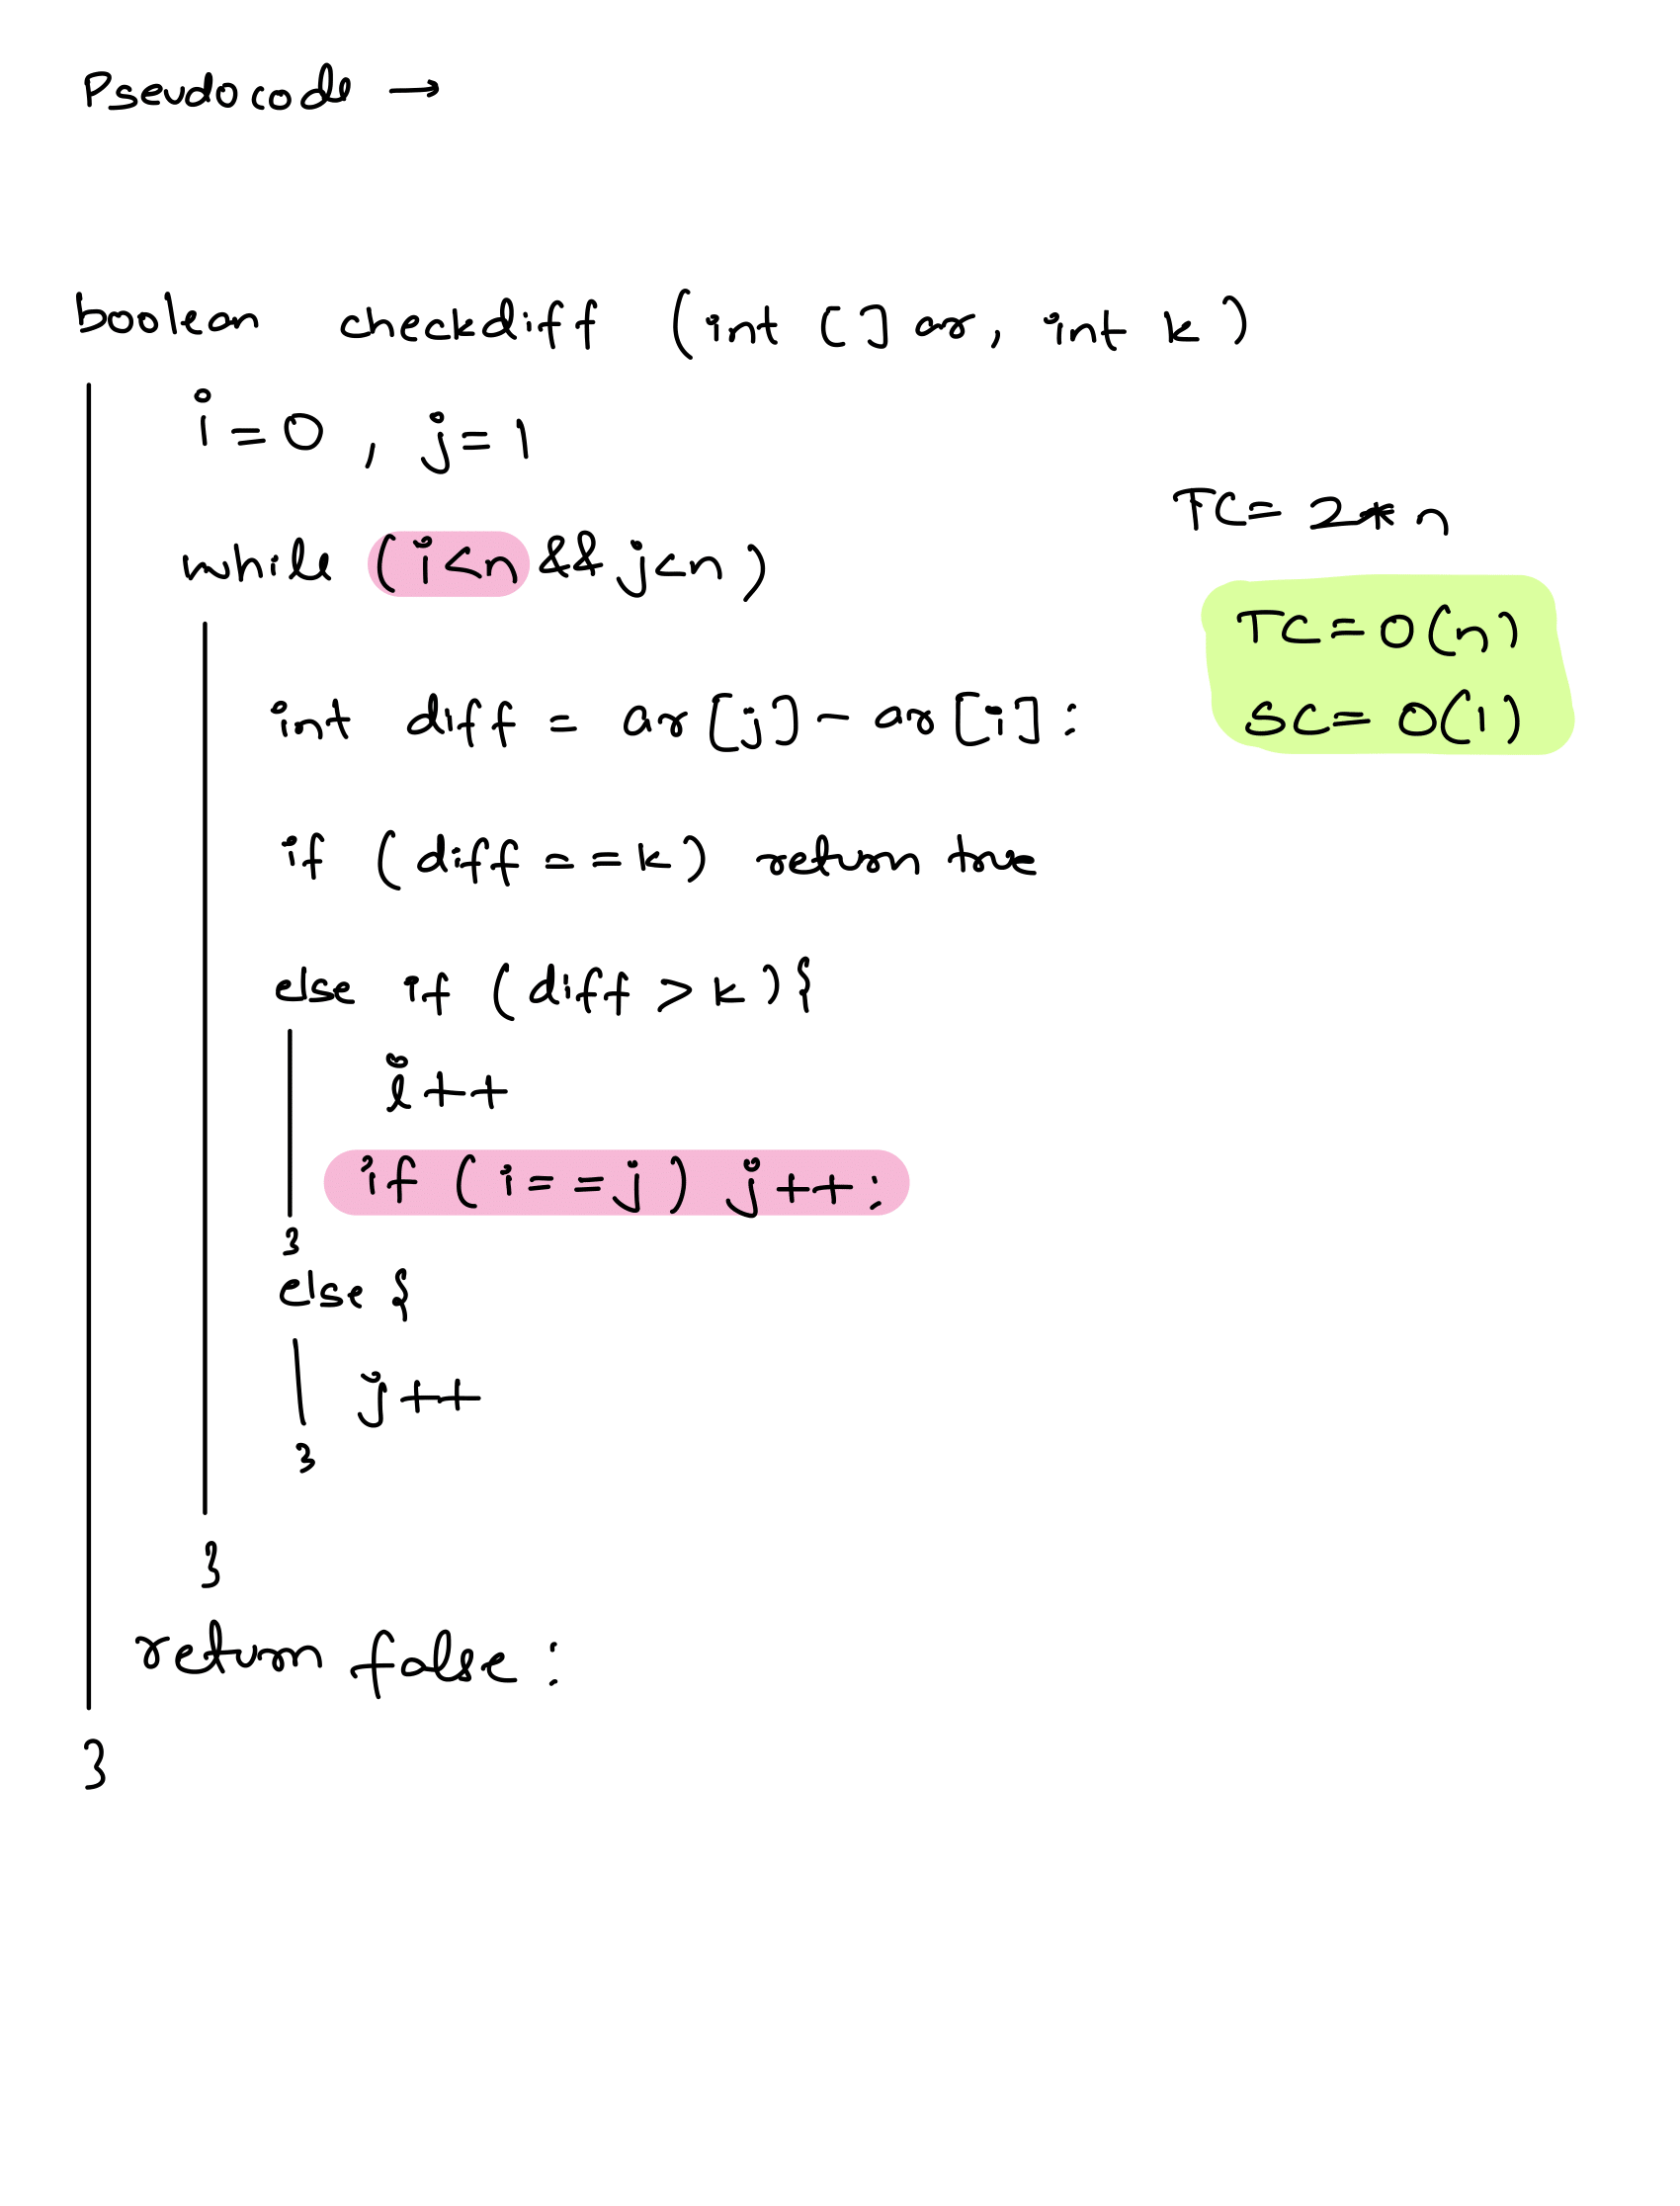 Pseudocode →
boolean checkdiff (int [] ar, int k)
i=0, j=1
TC= 2*n
while (i<n && j<n)
TC=O(n)
SC=O(1)
int diff = ar[j]-ar[i];
if (diff ==k) return true
else if (diff > k){
i++
if (i==j) j++;
}
else {
j++
}
}
return false;
}